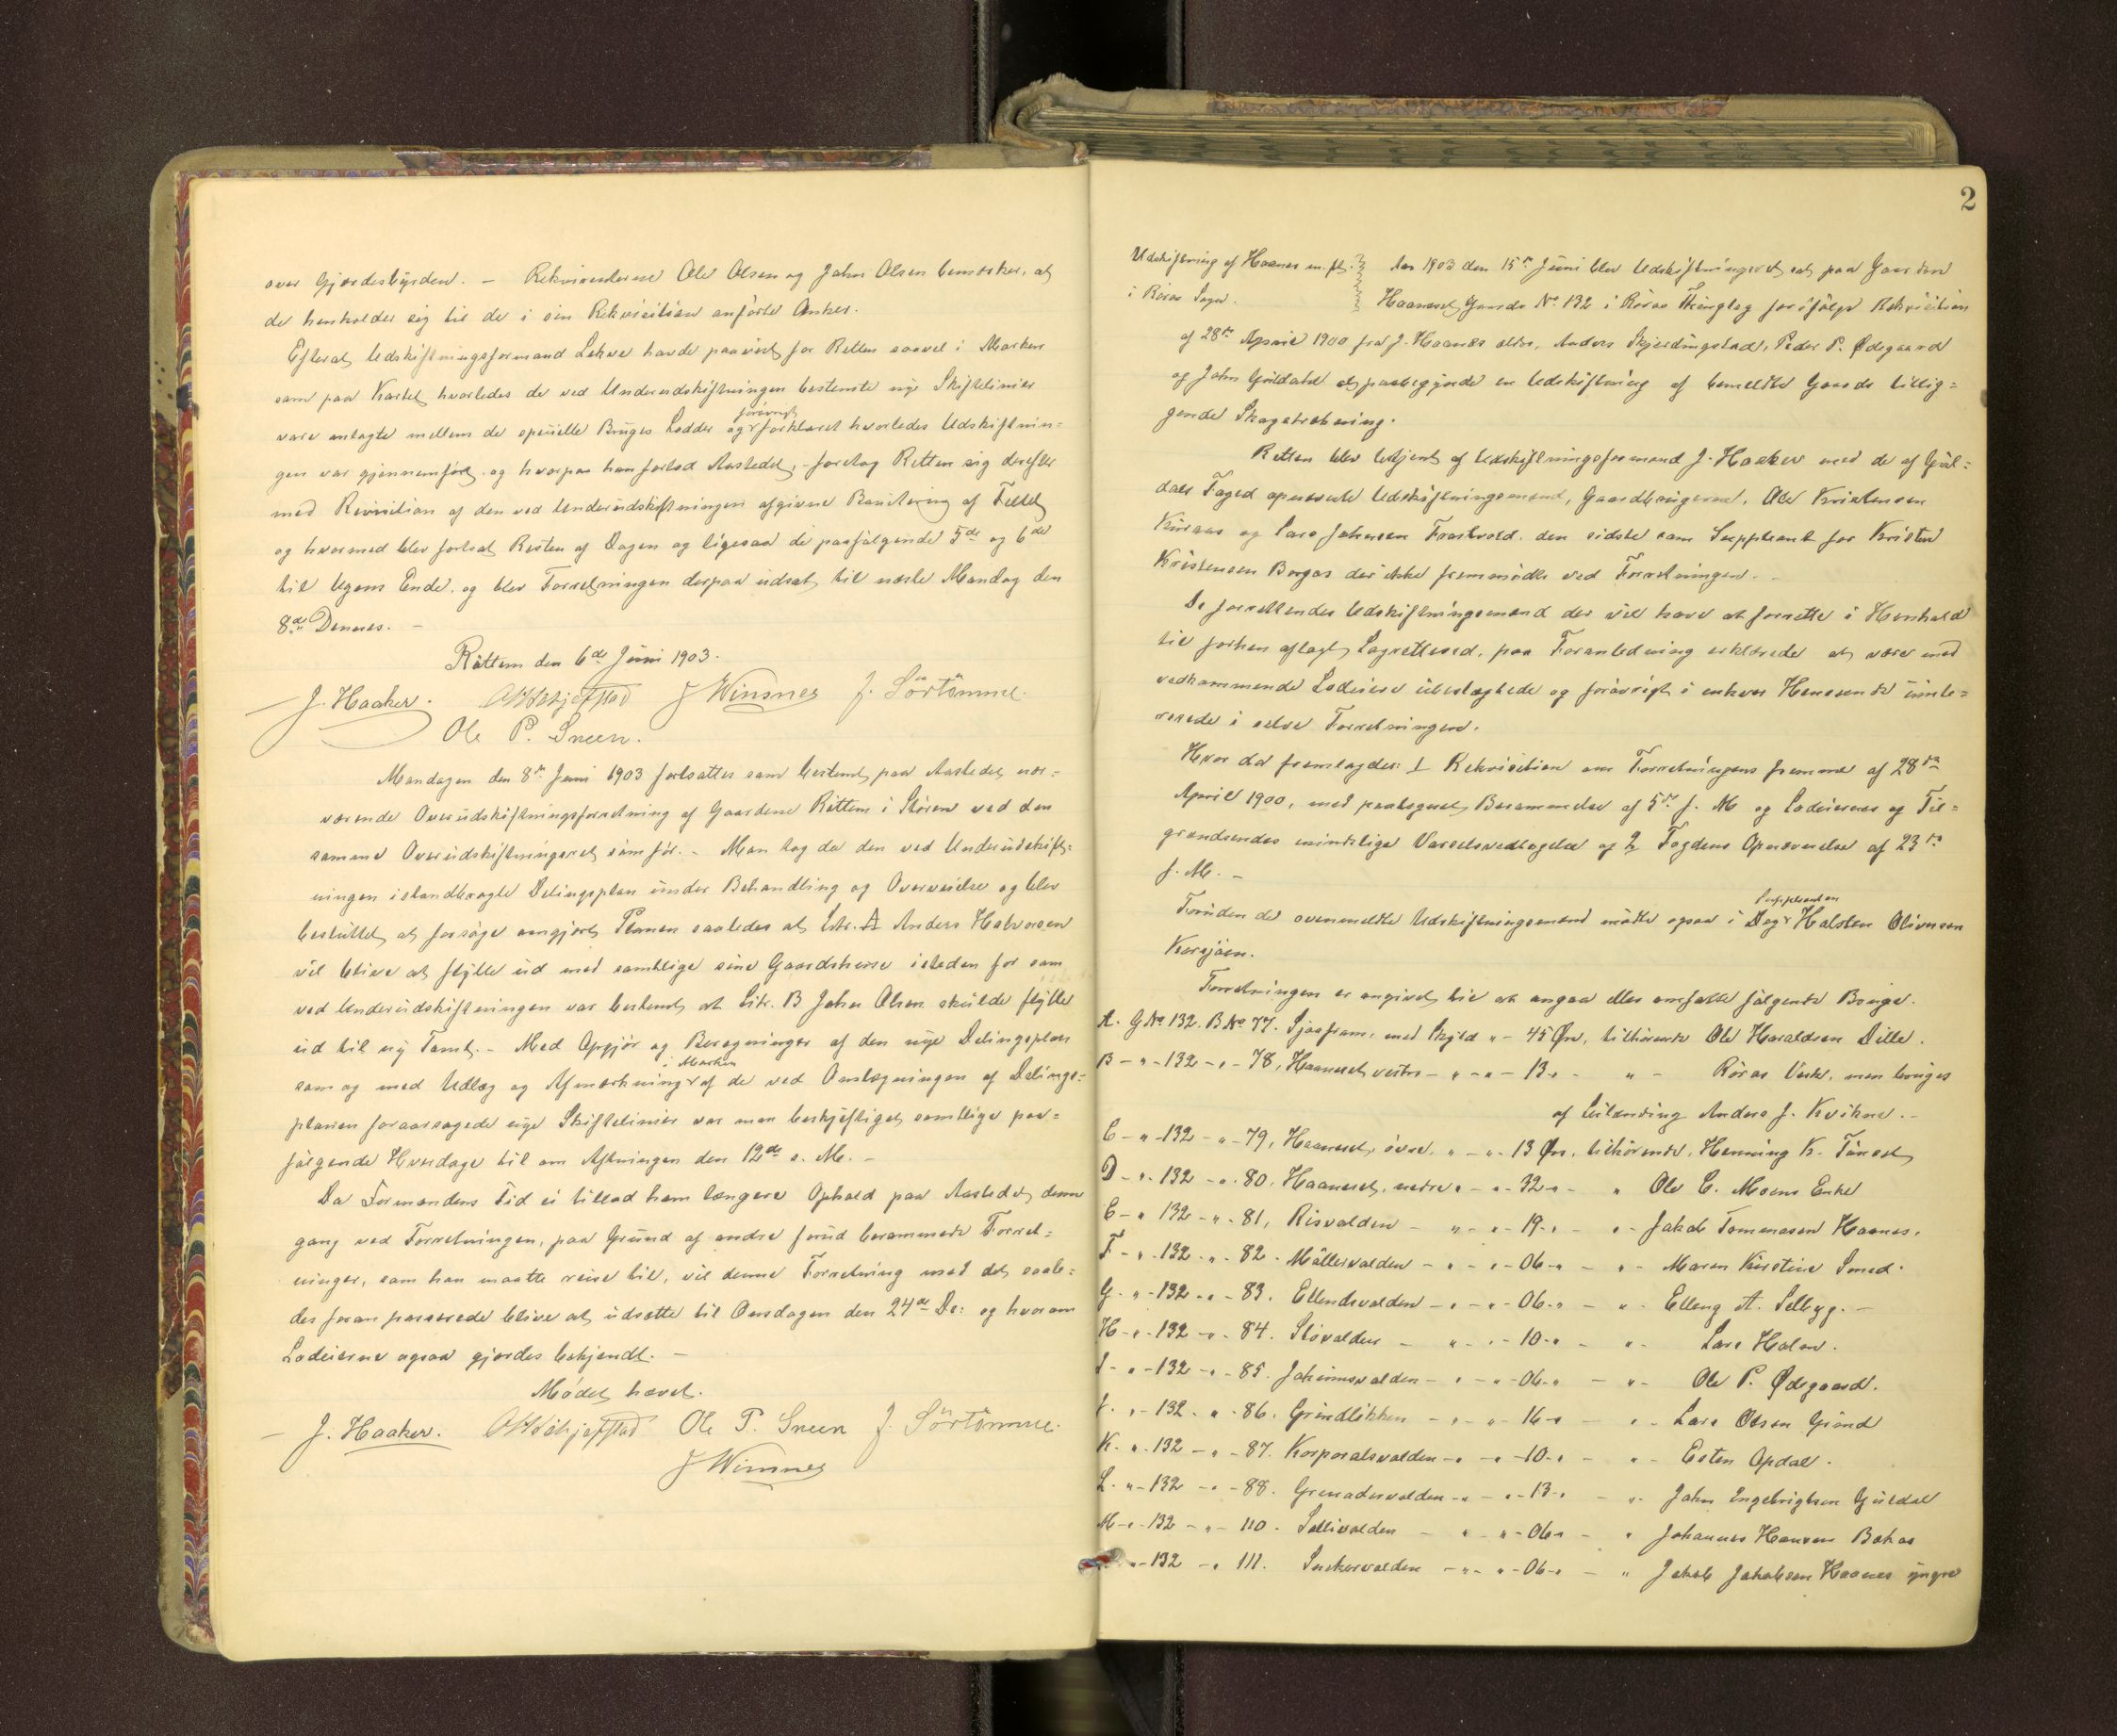 over Gjærdesbyrden. — Rekvirenterne Ole Olsen og John Olsen bemærker, at
de henholder sig til de i sin Rekvisition anførte Anker.
Efterat Udskiftningsformand Lehre havde paavist for Retten saavel i Marken
som paa Kartet hvorledes de ved Underudskiftningen bestemte nye Skiftelinier
vare anlagte mellem de specielle Bruges Lodder og forøvrigt forklaret hvorledes Udskiftnin=
gen var gjennemført og hvorpaa han forlod Aastedet, foretog Retten sig derefter
med Revision af den ved Underudskiftningen afgivne Bonitering af Feltet
og hvormed blev fortsat Resten af Dagen og ligesaa de paafølgende 5de og 6de
til Ugens Ende, og blev Forretningen derpaa udsat til næste Mandag den
8de Dennes. —
Røttum den 6de Juni 1903.
J. Haaker. J Winsnes J. Sörtömme.
Ole P. Sneen.
Mandagen den 8de Juni 1903 fortsattes som bestemt paa Aastedet nær=
værende Overudskiftningsforretning af Gaardene Röttum i Støren ved den
samme Overudskiftningsret som før. - Man tog da den ved Underudskift=
ningen istandbragte Delingsplan under Behandling og Overveielse og blev
besluttet at forsøge omgjort Planen saaledes at Litr. A Anders Halvorsen
vil blive at flytte ud med samtlige sine Gaardshuse isteden for som
ved Underudskiftningen var bestemt at Litr. B John Olsen skulde flytte
ud til ny Tomt. - Med Opgjør og Beregninger af den nye Delingsplan
som og med Udlæg og Afmærkning i Marken af de ved Omlægningen af Delings=
planen foraarsagede nye Skiftelinier var man beskjæftiget samtlige paa=
følgende Hverdage til om Aftningen den 12de s. M. -
Da Formandens Tid ei tillod ham længere Ophold paa Aastedet denne
gang ved Forretningen, paa Grund af andre forud berammede Forret=
ninger, som han maatte reise til, vil denne Forretning med det saale=
des foran passerede blive at udsætte til Onsdagen den 24de Ds: og hvorom
Lodeierne ogsaa gjordes bekjendt. —
Mødet hævet.
J. Haaker. Ole P. Sneen J. Sörtömme.
J Winsnes
2
Udskiftning af Haanes m. fl. i Røros Sogn.
Aar 1903 den 15de Juni blev Udskiftningsret sat paa Gaarden
Haaneset Gaards No 132 i Røros Thinglag forøifølge Rekvisition
af 28de April 1900 fra J. Haanes ældre, Anders Skjerdingstad, Peder P. Ødegaard
og John Guldahl at paabegynde en Udskiftning af bemeldte Gaards tillig=
gende Skogstrækning.
Retten blev betjent af Udskiftningsformand J. Haaker med de af Gul=
dals Foged opnævnte Udskiftningsmænd, Gaardbrugerne, Ole Kristensen
Kuraas og Lars Johnsen Frostvold, den sidste som Suppleant for Kristen
Kristensen Borgos der ikke fremmødte ved Forretningen. -
De forrettende Udskiftningsmænd der vil have at forrette i Henhold
til forhen aflagt Lagretteed, paa Foranledning erklærede at være med
vedkommende Lodeiere ubeslægtede og forøvrigt i enhver Henseende uinte=
resserede i selve Forretningen.
Hvor da fremlagdes: 1 Rekvisition om Forretningens fremme af 28de
April 1900, med paategnet Berammelse af 5te f. M og Lodeiernes og Til=
grændsendes mindelige Varselsvedtagelse og 2 Fogdens Opnævnelse af 23de
f. M. -
Foruden de ovenmeldte Udskiftningsmænd mødte ogsaa i Dag Suppleanten Halsten Oliversen
Korsjøen.
Forretningen er angivet til at angaa eller omfatte følgende Bruge.
A. G No 132. B No 77. Sjaafram, med Skyld " - 45 Øre, tilhørende Ole Haraldsen Dille.
B - " - 132 - " - 78, Haaneset vestre - " - " - 13 " - " - Røros Verk, men bruges
af Leilænding Anders J. Kvikne. -
C - " - 132 - " - 79, Haaneset, øvre, " - " - 13 Øre, tilhørende, Henning K. Tørres
D - " - 132 - " - 80. Haaneset, nedre " - " - 32 " - " Ole C. Moens Enke
E - " 132 - " - 81, Risvolden - " - " - 19 - " - " - Jakob Tommesen Haanes.
F - " - 132 - " - 82. Møllervolden - " - " - 06 - " - " - Maren Kirstine Smed.
G. " - 132 - " - 83. Ellendvolden - " - " - 06 - " - " - Elling A. Selbyg. -
H - " - 132 - " - 84. Støvolden - " - " - 10 - " - " - Lars Holm.
I - " - 132 - " - 85. Johannesvolden - " - " - 06 - " - " - Ole P. Ødegaard.
J. " - 132. " - 86. Grindløkken - " - " - 16 - " - " - Lars Olsen Grind
K. " - 132 - " - 87. Korporalsvolden - " - " - 10 - " - " - Esten Opdal.
L. " - 132 - " - 88. Grenadervolden - " - " - 13 - " - " - John Engebrigtsen Guldal
M - " - 132 - " - 110. Sellivolden - " - " - 06 " - " Johannes Hansen Bakos
" - 132 - " 111. Snekkervolden - " - " - 06 - " - " Jakob Jakobsen Haanes yngre